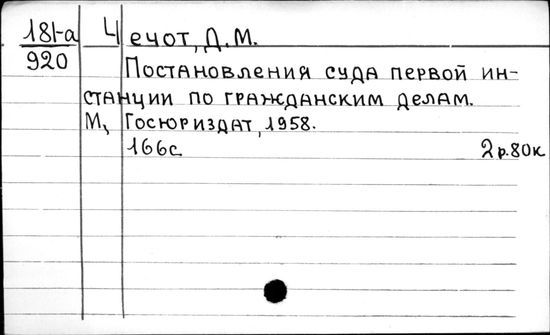 181-а Чечот, Д.М.
920
Постановления суда первой ин-
станции по гражданским делам.
М., Госюриздат, 1958.
166с 2р.80к